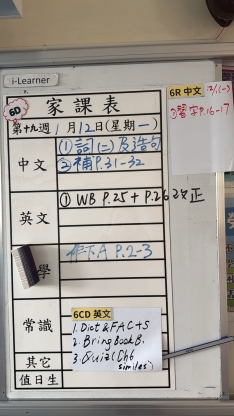 i-Learner
6D
家課表
第十九週 1月12日(星期一)
中文
① 詞(二)及造句
② 補P.31-32
英文
① WB P.25 + P.26 改正
學
作下A P.2-3
常識
其它
值日生
6R 中文 12/1(一)
① 習字P.16-17
6CD 英文
1. Dict & FACTS
2. Bring Book B.
3. Quiz (Ch6
similes)